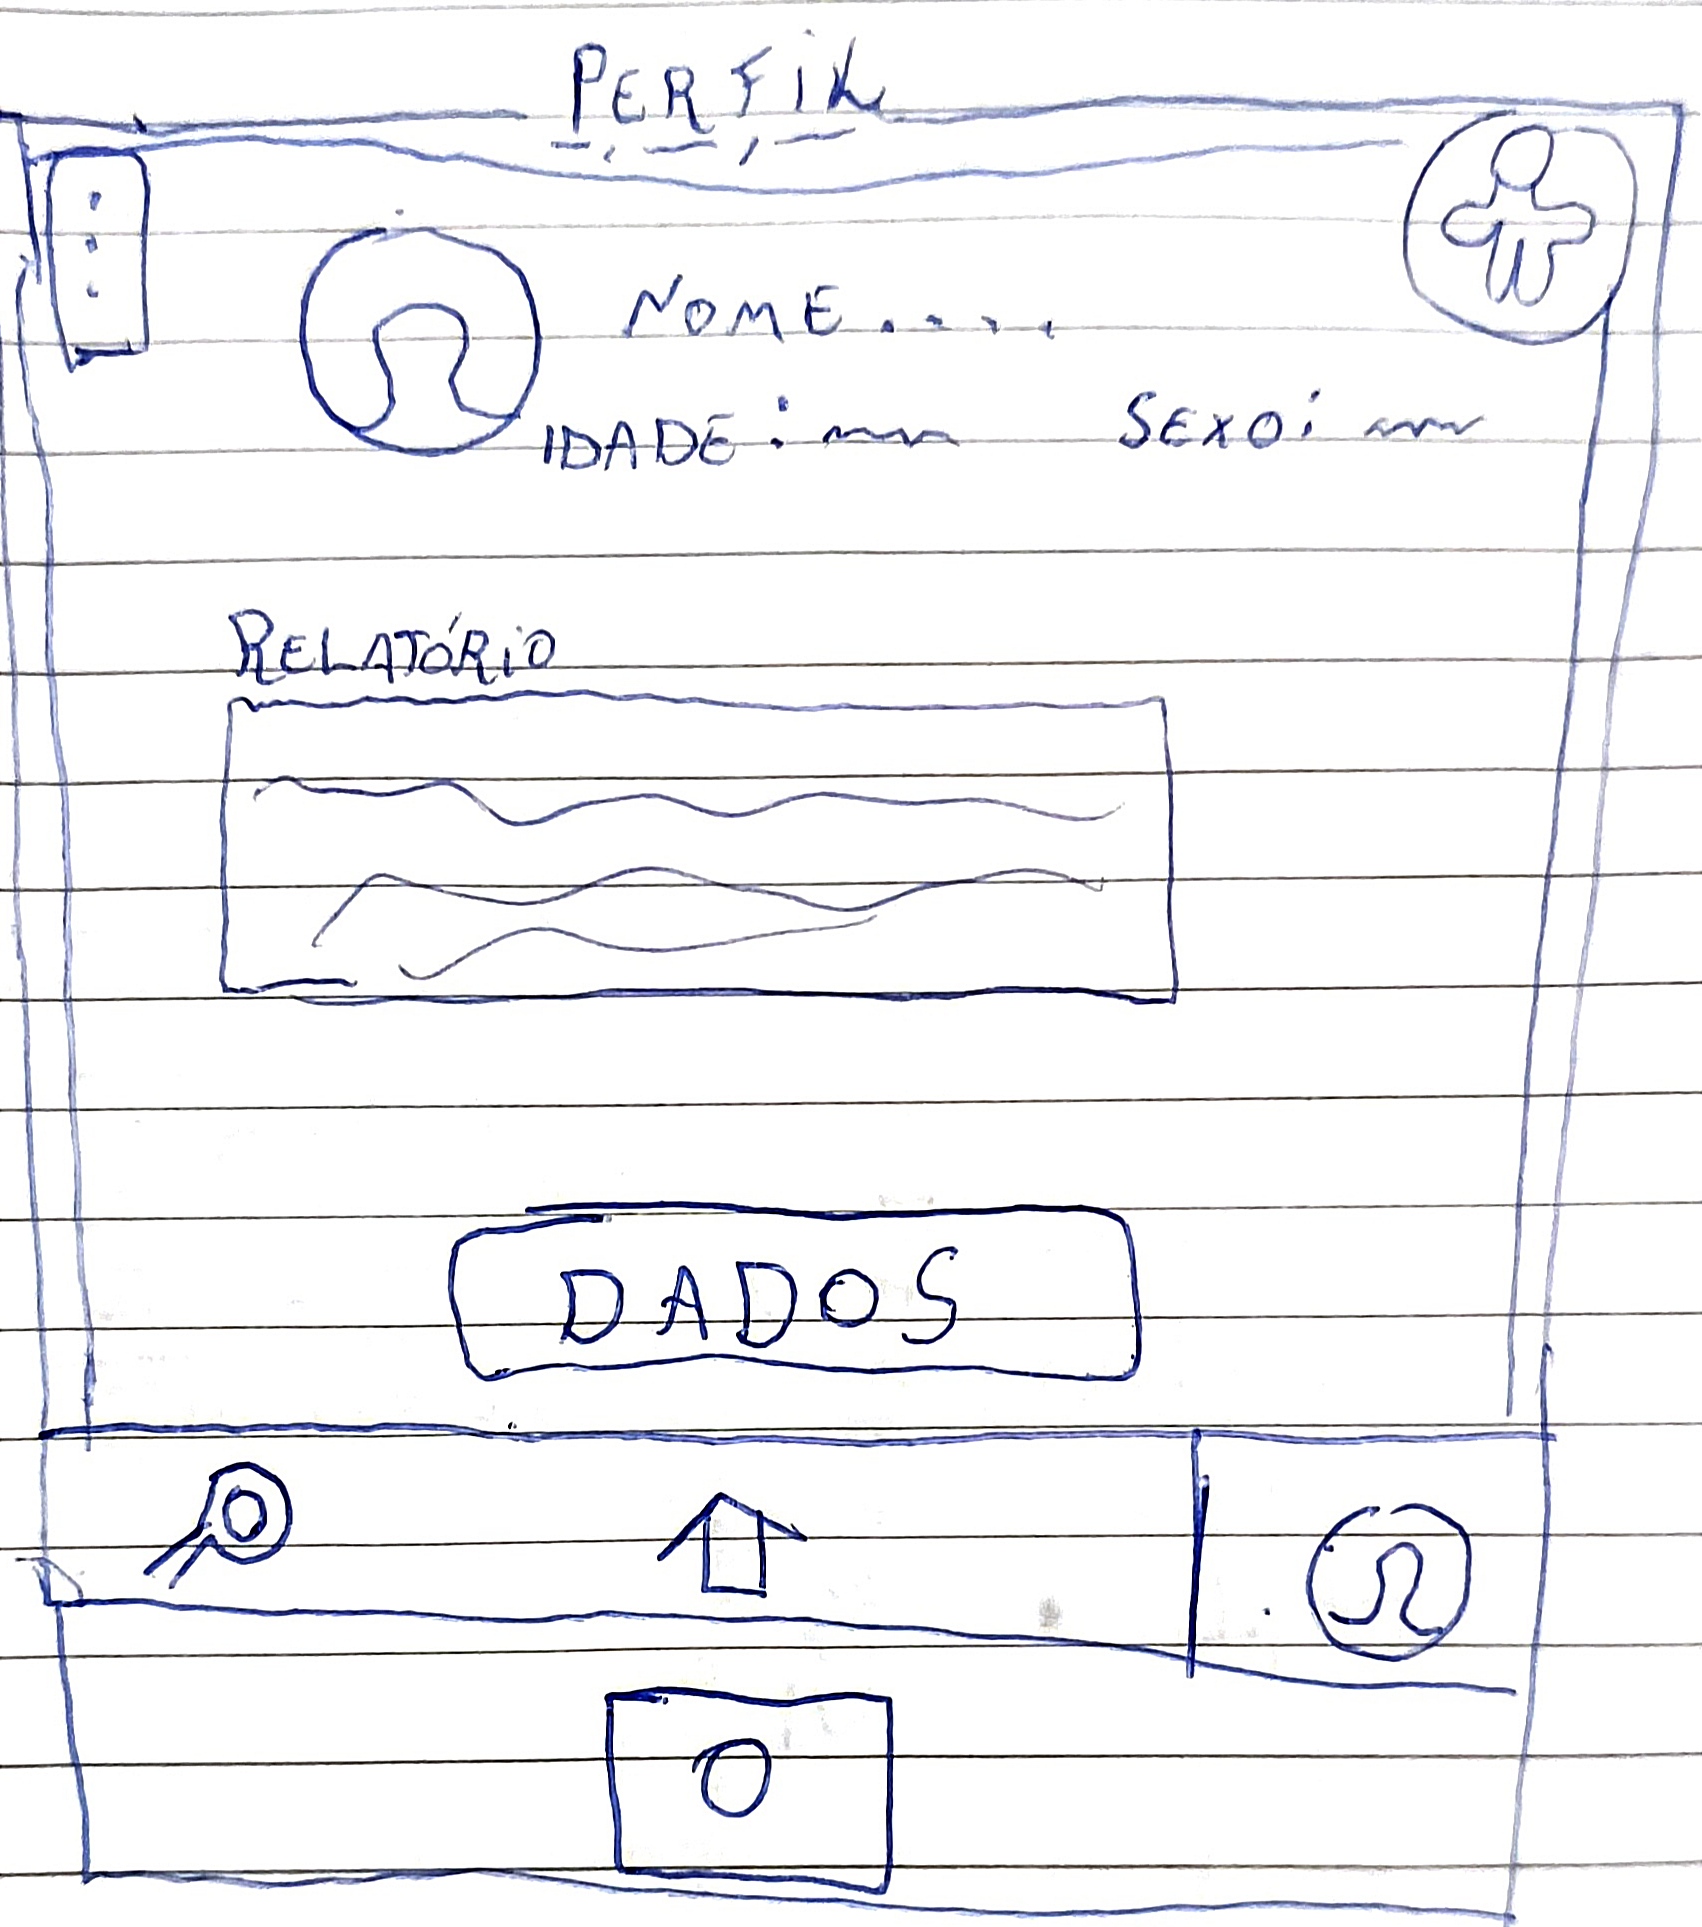 PERFIL
NOME....
IDADE: SEXO:
RELATÓRIO
DADOS